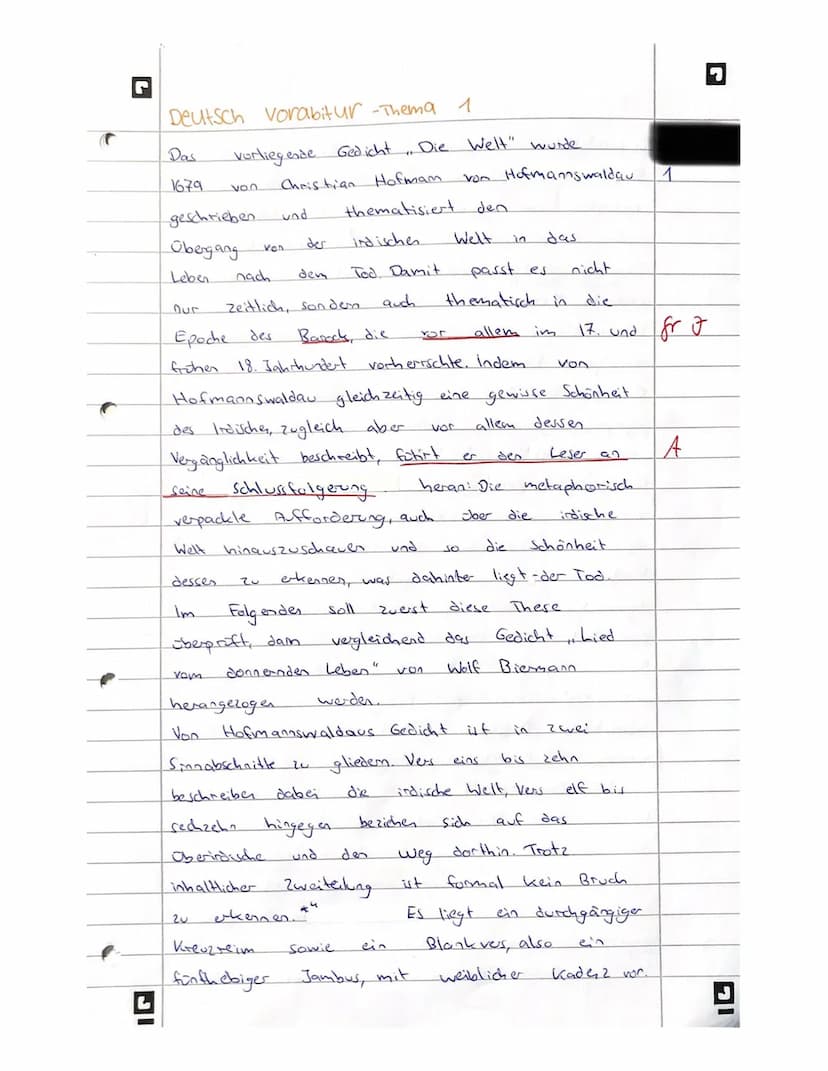 Deutsch Vorabitur - Thema 1
Das vorliegende Gedicht „Die Welt" wurde
1679 von Christian Hofmann von Hofmannswaldau 1
geschrieben und thematisiert den
Übergang von der irdischen Welt in das
Leben nach dem Tod. Damit passt es nicht
nur zeitlich, sondern auch thematisch in die
Epoche des Barock, die vor allem im 17. und
frühen 18. Jahrhundert vorherrschte. Indem von
Hofmannswaldau gleichzeitig eine gewisse Schönheit
des Irdischen, zugleich aber vor allem dessen
Vergänglichkeit beschreibt, führt er den Leser an A
seine Schlussfolgerung heran: Die metaphorisch
verpackte Aufforderung, auch über die irdische
Welt hinauszuschauen und so die Schönheit
dessen zu erkennen, was dahinter liegt - der Tod.
Im Folgenden soll zuerst diese These
überprüft, dann vergleichend das Gedicht „Lied
vom donnernden Leben" von Wolf Biermann
herangezogen werden.
Von Hofmannswaldaus Gedicht ist in zwei
Sinnabschnitte zu gliedern. Vers eins bis zehn
beschreiben dabei die irdische Welt, Vers elf bis
sechzehn hingegen beziehen sich auf das
Überirdische und den Weg dorthin. Trotz
inhaltlicher Zweiteilung ist formal kein Bruch
zu erkennen. Es liegt ein durchgängiger
Kreuzreim sowie ein Blankvers, also ein
fünfhebiger Jambus, mit weiblicher Kadenz vor.